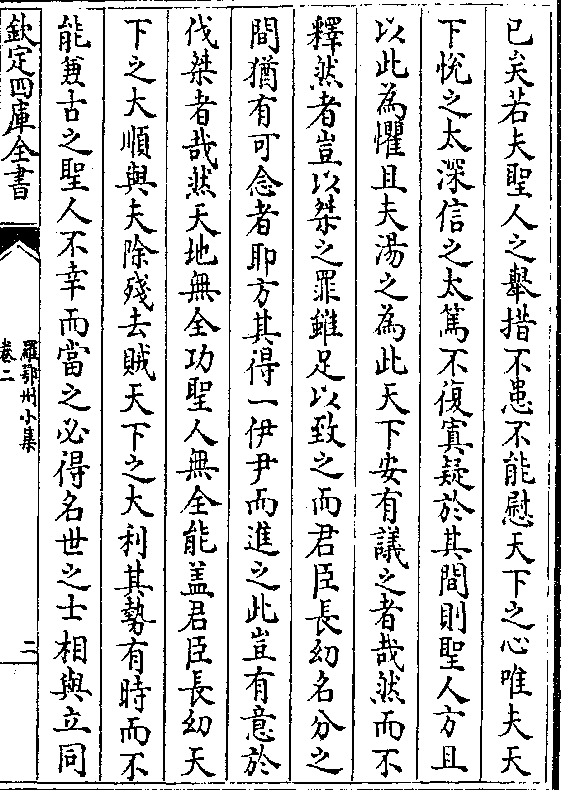 已矣若夫聖人之舉措不患不能慰天下之心唯夫天
下悦之太深信之太篤不復寘疑於其間則聖人方且
以此為懼且夫湯之為此天下安有議之者哉然而不
釋然者豈以桀之罪雖足以致之而君臣長幼名分之
間猶有可念者耶方其得一伊尹而進之此豈有意於
伐桀者哉然天地無全功聖人無全能盖君臣長幼天
下之大順與夫除殘去賊天下之大利其勢有時而不
能兼古之聖人不幸而當之必得名世之士相與立同
欽定四庫全書
羅鄂州小集
卷二
二